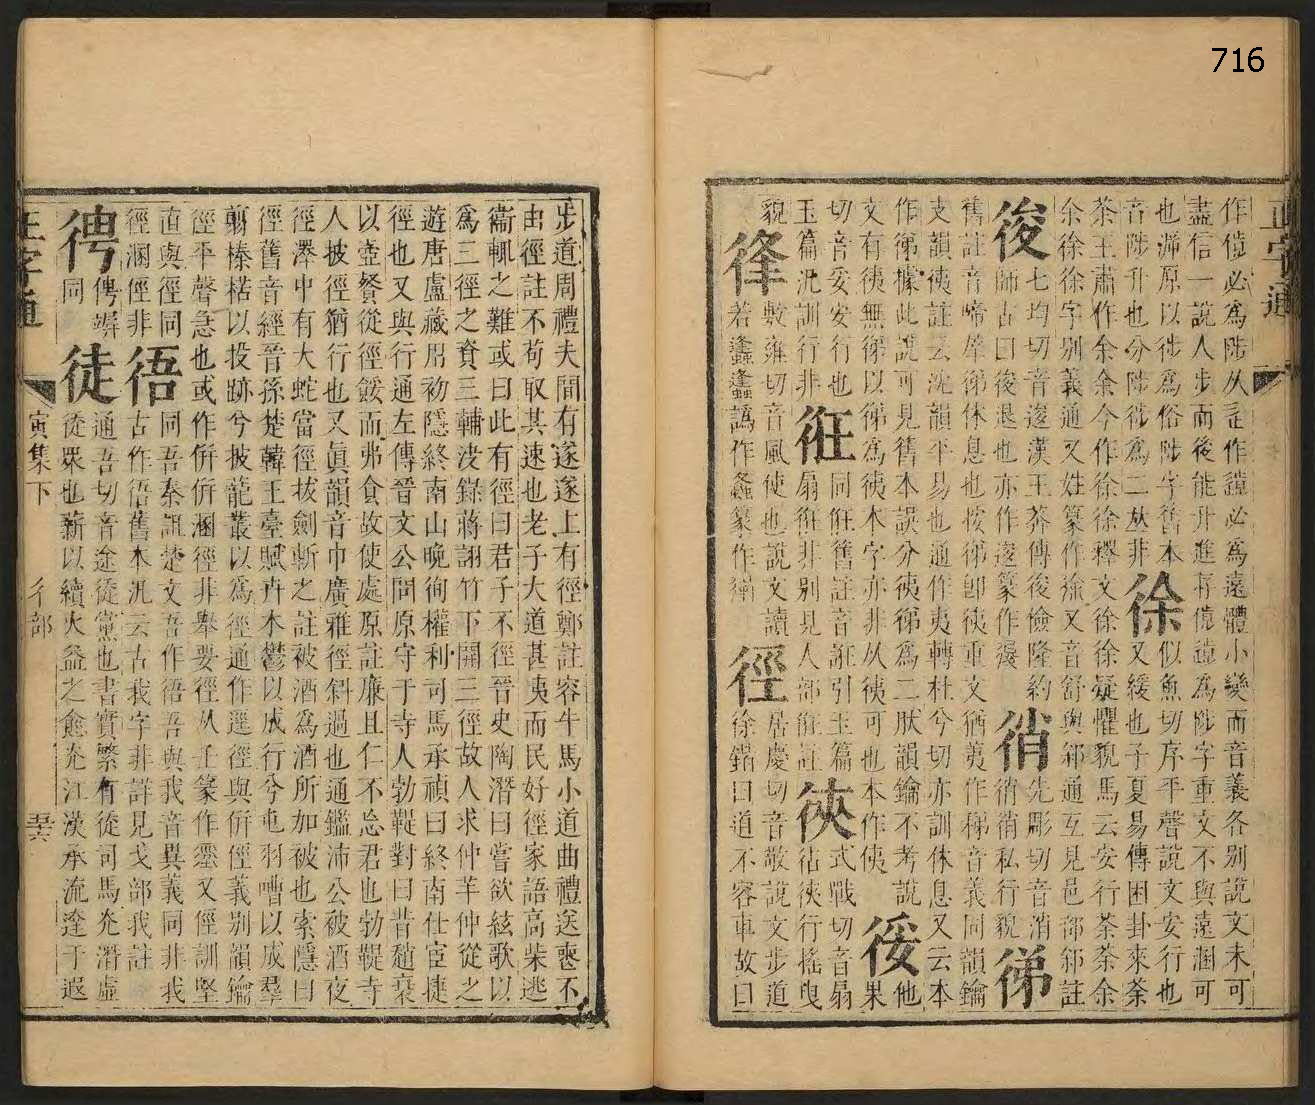 716
正字通
作徝必爲陟从𧾷作䠦必爲遠體小變而音義各别說文未可
盡信一說人步而後能升進㝵徝䠦爲陟字重文不與遠溷可
也溯原以徏爲俗陟字舊本
音陟升也分陟徏爲二𠀤非
徐似魚切序平聲說文安行也
又緩也子夏易傳困卦來荼
荼王肅作余余今作徐徐釋文徐徐疑懼貌馬云安行荼荼余
余徐徐字别義通又姓篆作徐又音舒與郐通互見邑部郐註
後七均切音逡漢王莽傳後儉隆約
師古曰後退也亦作逡篆作㣪
徟先彫切音消
徟徟私行貌
俤
舊註音啼犀俤休息也按俤卽徲重文猶荑作稊音義同韻鑰
支韻徲註云沈韻平易也通作夷轉杜兮切亦訓休息又云本
作俤據此說可見舊本誤分徲俤爲二肰韻鑰不考說他
文有徲無俤以俤爲徲本字亦非从徲可也本作㑥
㣦果
切音妥安行也
玉篇汎訓行非
𢓯同𠊧舊註音誑引玉篇
扇𢓯非别見人部𠊧註
㣣式戰切音扇
㣣行搖曳
貌
㣭敷雍切音風使也說文讀
若螽蠭譌作螽篆作㣭
徑居慶切音敬說文步道
徐鍇曰道不容車故曰
步道周禮夫間有遂遂上有徑鄭註容牛馬小道曲禮送喪不
由徑註不苟取其速也老子大道甚夷而民好徑家語高柴逃
衞輒之難或曰此有徑曰君子不徑晉史陶潛曰嘗欲絃歌以
爲三徑之資三輔決錄蔣詡竹下開三徑故人求仲羊仲從之
遊唐盧藏用初隱終南山晚徇權利司馬承禎曰終南仕宦捷
徑也又與行通左傳晉文公問原守于寺人勃鞮對曰昔趙衰
以壺餐從徑餒而弗食故使處原註廉且仁不忘君也勃鞮寺
人披徑猶行也又眞韻音巾廣雅徑斜過也通鑑沛公被酒夜
徑澤中有大蛇當徑拔劍斬之註被酒爲酒所加被也索隱曰
徑舊音經晉孫楚韓王臺賦卉木鬱以成行兮黽羽嘈以成羣
翦榛楛以投跡兮披龍叢以爲徑通作逕徑與俓義别韻鑰
徑平聲急也或作俓俓溷徑非舉要徑从辵篆作㢵又俓訓堅
直與徑同
徑溷俓非
𢓲同吾秦詛楚文吾作𢓲吾與我音異義同非我
古作𢓲舊本汎云古我字非詳見戈部我註
㣔俜䇯
同
徒通吾切音途從黨也書實繁有徒司馬光潛虛
從眾也薪以續火益之愈光江漢承流逵于遐
正字通
寅集下
彳部
五十六